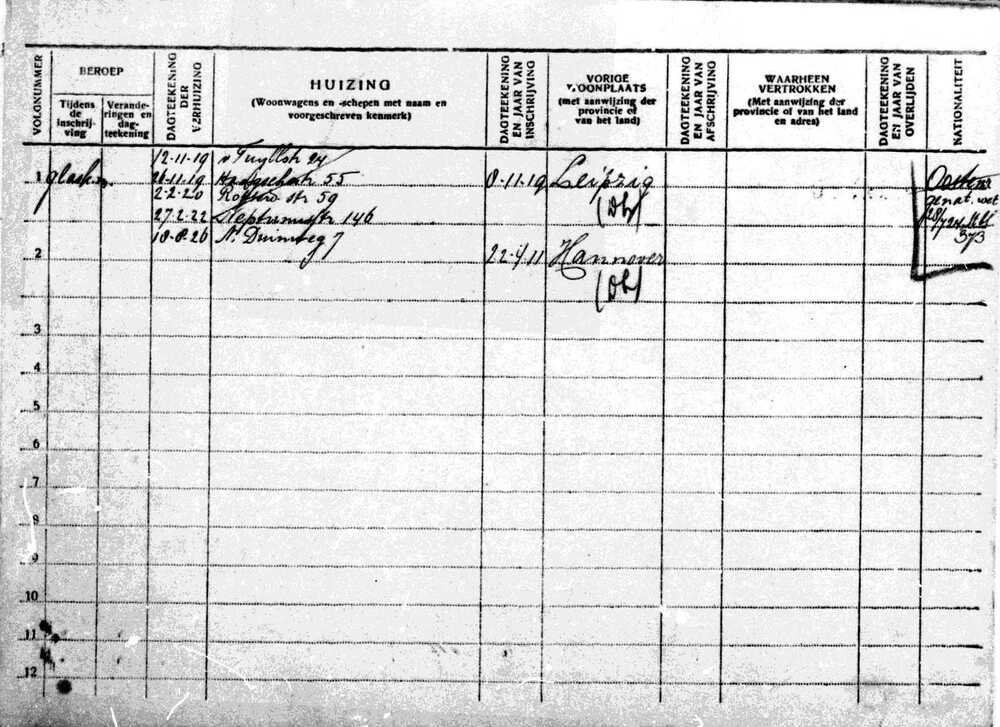 VOLGNUMMER
BEROEP
Tijdens
de
inschrij-
ving
Verande-
ringen en
dag-
teekening
DAGTEEKENING
DER
VERHUIZING
HUIZING
(Woonwagens en -schepen met naam en
voorgeschreven kenmerk)
DAGTEEKENING
EN JAAR VAN
INSCHRIJVING
VORIGE
WOONPLAATS
(met aanwijzing der
provincie of
van het land)
DAGTEEKENING
EN JAAR VAN
AFSCHRIJVING
WAARHEEN
VERTROKKEN
(Met aanwijzing der
provincie of van het land
en adres)
DAGTEEKENING
EN JAAR VAN
OVERLIJDEN
NATIONALITEIT
12-11-19 v Tuyllstr 24
1 26-11-19 55 8-11-19 Leipzig
2-2-20 str 59 (Dl)
27-2-22 Neptunusstr 146
18-8-26 N. Duinweg 7
genat. wet
373
2 22-4/11 Hannover
(Dl)
3
4
5
6
7
8
9
10
11
12